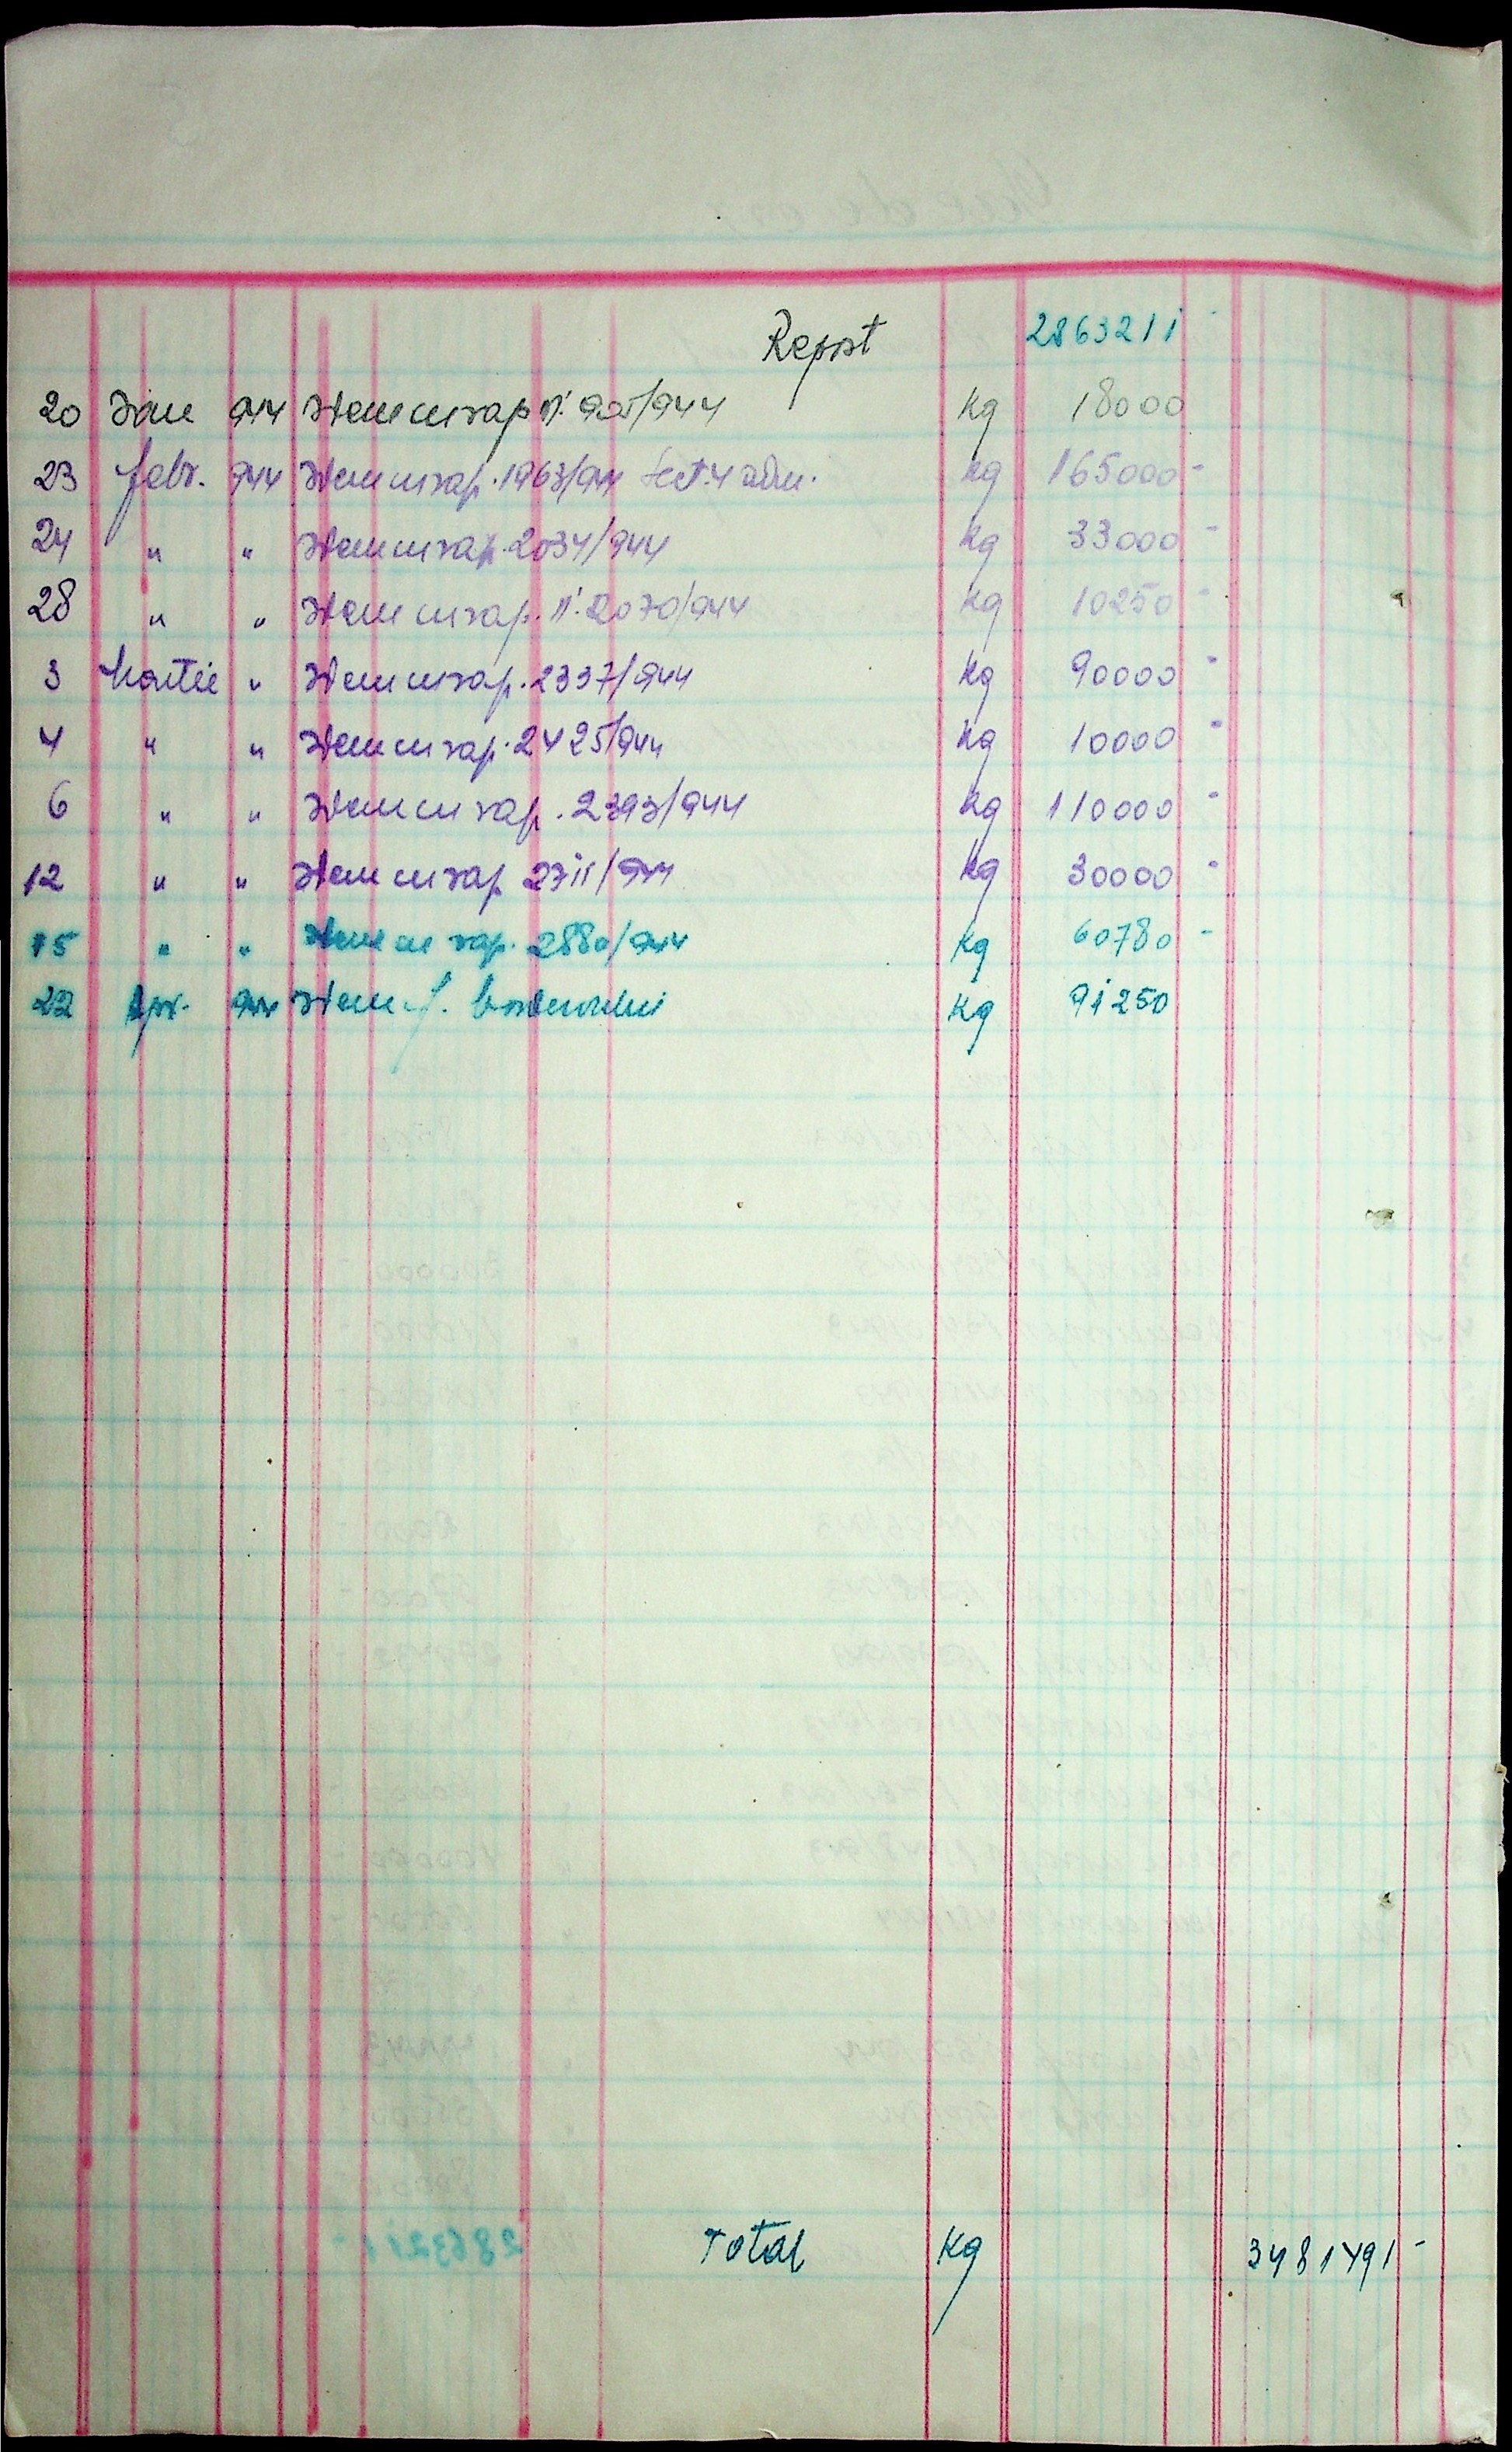 Report 2863211
20 Ian 944 Idem cu rap. n: 905/944 kg 18000
23 febr. 944 Idem cu rap. 1963/944 sect. 4 adm. kg 165000-
24 " " Idem cu rap. 2034/944 kg 33000-
28 " " Idem cu rap. n: 2070/944 kg 10250-
3 Martie " Idem cu rap. 2337/944 kg 90000-
4 " " Idem cu rap. 2425/944 kg 10000-
6 " " Idem cu rap. 2393/944 kg 110000-
12 " " Idem cu rap 2711/944 kg 30000-
15 " " Idem cu rap. 2880/944 kg 60780-
22 Apr. 944 Idem cf. borderoului kg 91250
Total kg 3481491-